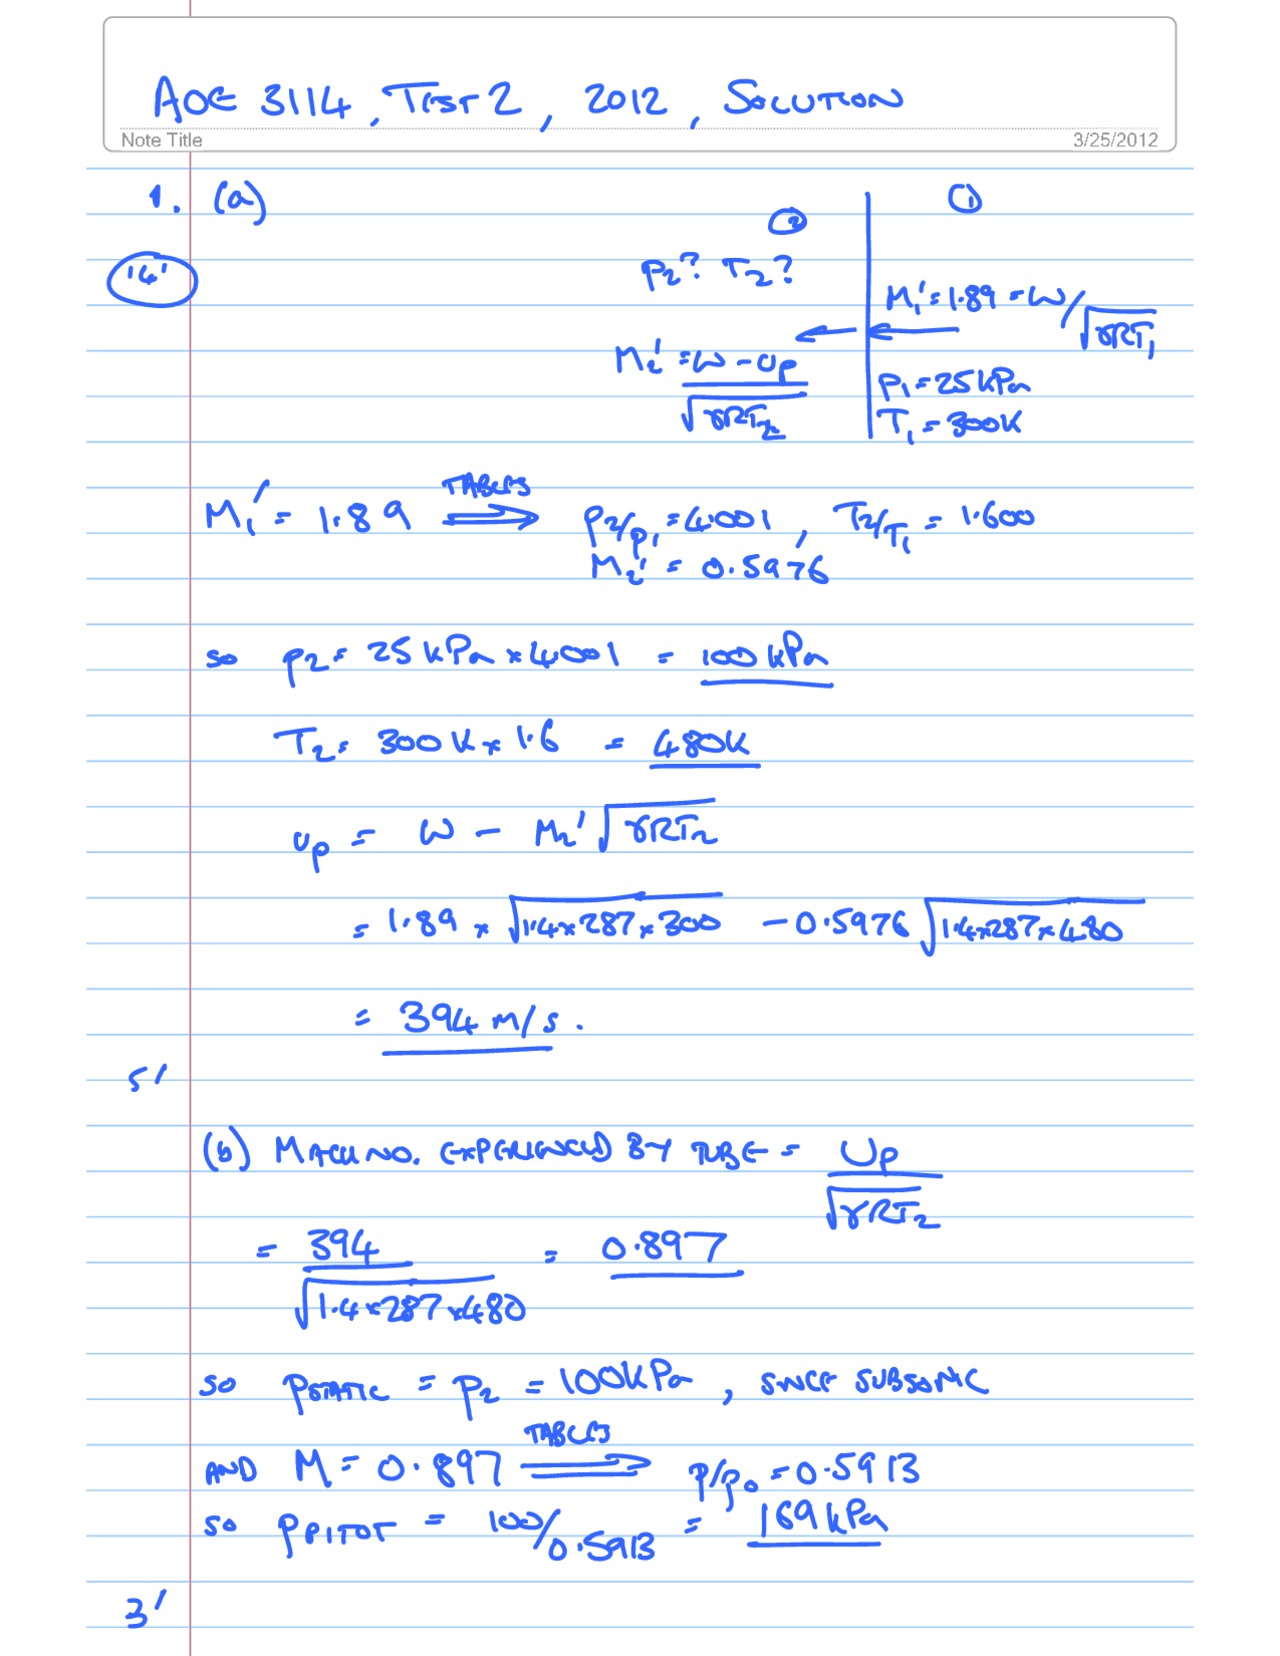 AOE 3114, TEST 2, 2012, SOLUTION
Note Title
3/25/2012
1. (a)
①
②
14'
P₂? T₂?
M₁' = 1.89 = W/√γRT₁
M₂' = W - Up / √γRT₂
P₁ = 25 kPa
T₁ = 300K
TABLES
M₁' = 1.89 ⇒ P₂/P₁ = 4.001, T₂/T₁ = 1.600
M₂' = 0.5976
SO P₂ = 25 kPa × 4.001 = 100 kPa
T₂ = 300 K × 1.6 = 480K
Up = W - M₂' √γRT₂
= 1.89 × √1.4×287×300 - 0.5976 √1.4×287×480
= 394 m/s.
5'
(b) MACH NO. EXPERIENCED BY TUBE = Up / √γRT₂
= 394 / √1.4×287×480 = 0.897
SO PSTATIC = P₂ = 100kPa, SINCE SUBSONIC
TABLES
AND M = 0.897 ⇒ P/P₀ = 0.5913
SO PPITOT = 100/0.5913 = 169 kPa
3'